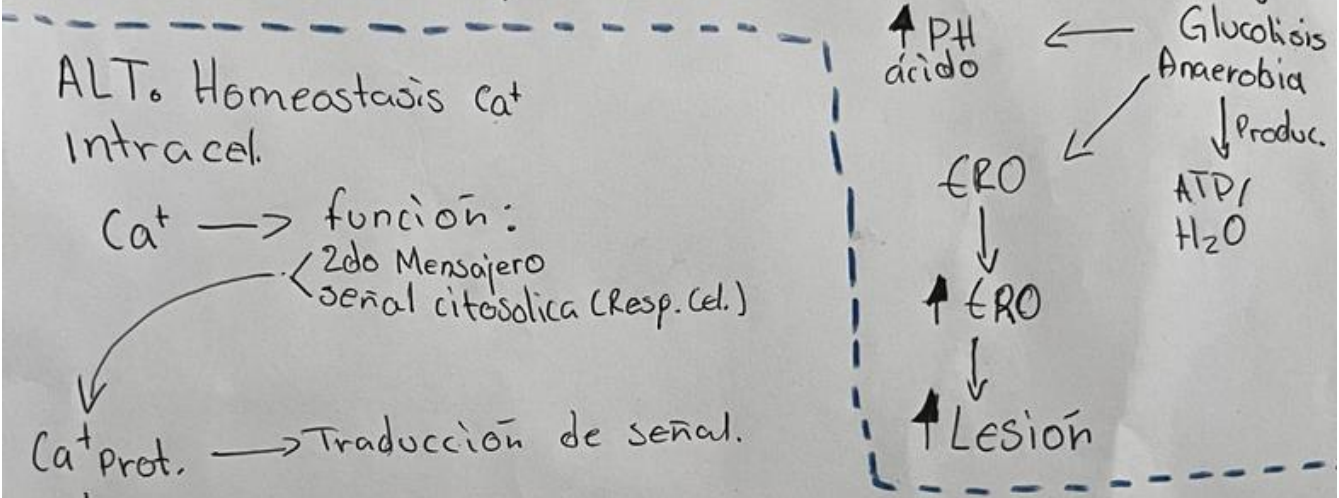 ALT. Homeostasis Ca⁺
Intracel.
Ca⁺ → función:
2do Mensajero
señal citosolica (Resp. Cel.)
Ca⁺ Prot. → Traducción de señal.
↑ PH ← Glucolisis
ácido Anaerobia
↓ Produc.
ERO ATP/
H₂O
↓
↑ ERO
↓
↑ Lesión